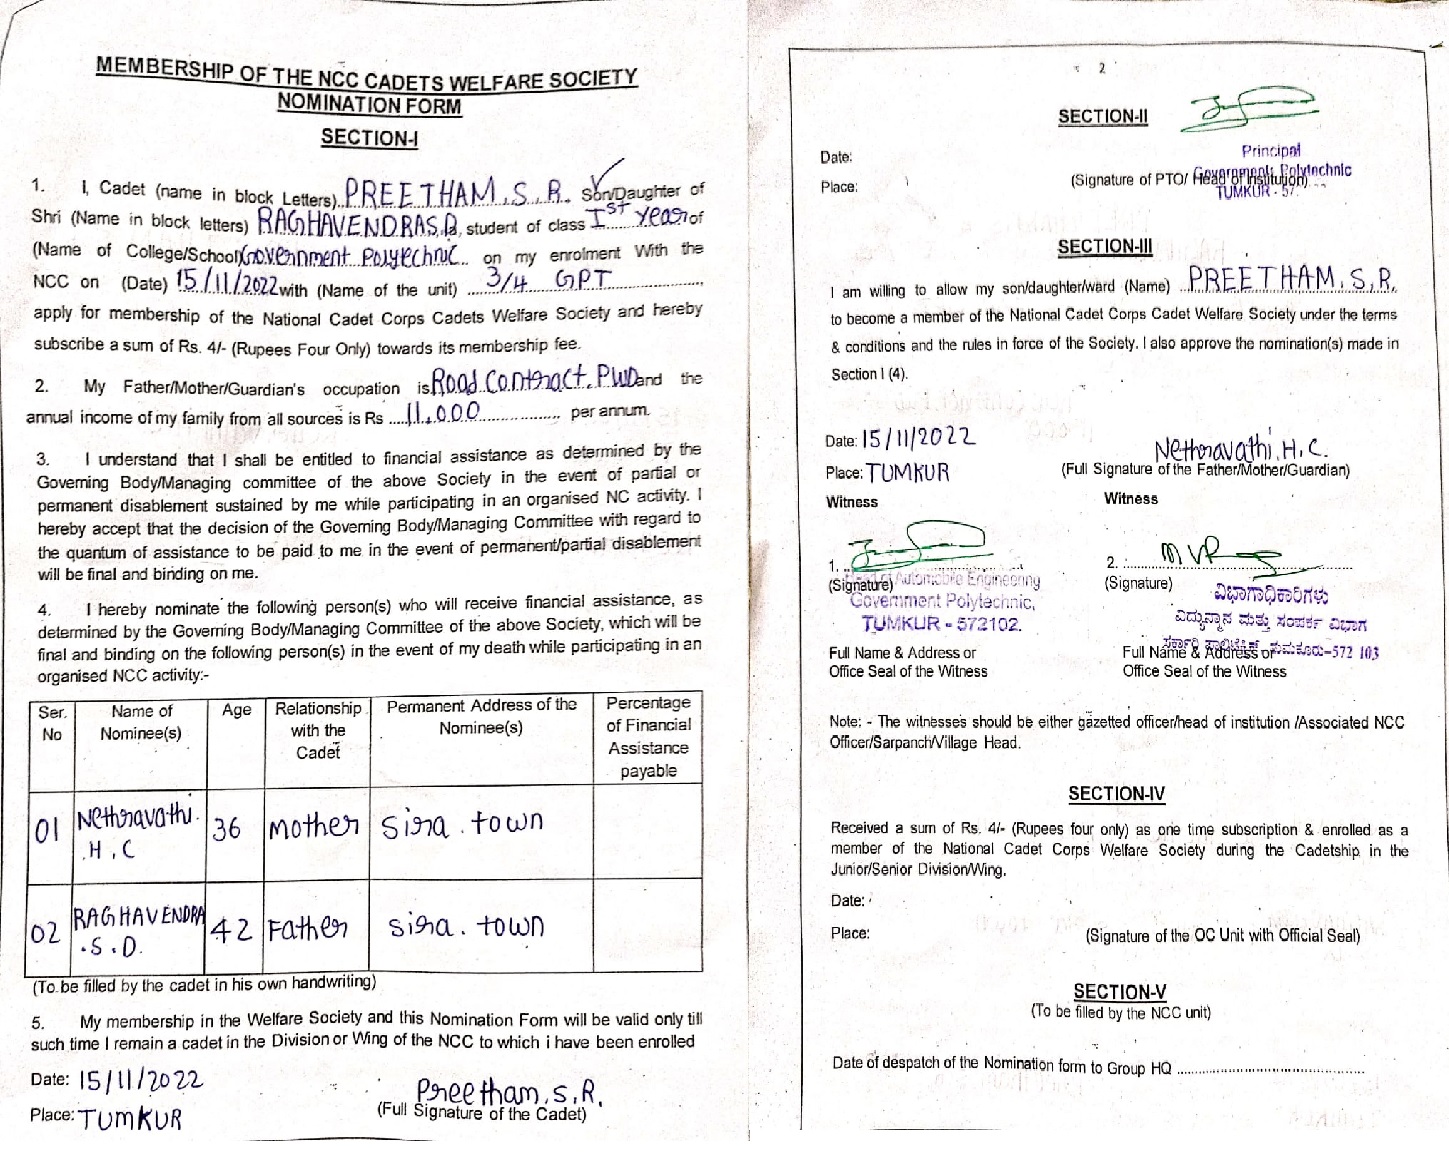 MEMBERSHIP OF THE NCC CADETS WELFARE SOCIETY
NOMINATION FORM
SECTION-I
1. I, Cadet (name in block Letters) PREETHAM.S.R. Son/Daughter of
Shri (Name in block letters) RAGHAVENDRA S.D, student of class Ist year of
(Name of College/School) Government Polytechnic on my enrolment With the
NCC on (Date) 15/11/2022 with (Name of the unit) 3/4 GPT
apply for membership of the National Cadet Corps Cadets Welfare Society and hereby
subscribe a sum of Rs. 4/- (Rupees Four Only) towards its membership fee.
2. My Father/Mother/Guardian's occupation is Road Contract. PWD and the
annual income of my family from all sources is Rs 11,000 per annum.
3. I understand that I shall be entitled to financial assistance as determined by the
Governing Body/Managing committee of the above Society in the event of partial or
permanent disablement sustained by me while participating in an organised NC activity. I
hereby accept that the decision of the Governing Body/Managing Committee with regard to
the quantum of assistance to be paid to me in the event of permanent/partial disablement
will be final and binding on me.
4. I hereby nominate the following person(s) who will receive financial assistance, as
determined by the Governing Body/Managing Committee of the above Society, which will be
final and binding on the following person(s) in the event of my death while participating in an
organised NCC activity:-
Ser. No Name of Nominee(s) Age Relationship with the Cadet Permanent Address of the Nominee(s) Percentage of Financial Assistance payable
01 Nethravathi.H.C 36 Mother Sira.town
02 RAGHAVENDRA.S.D. 42 Father Sira.town
(To be filled by the cadet in his own handwriting)
5. My membership in the Welfare Society and this Nomination Form will be valid only till
such time I remain a cadet in the Division or Wing of the NCC to which i have been enrolled
Date: 15/11/2022
Preetham.S.R.
Place: TUMKUR
(Full Signature of the Cadet)
2
SECTION-II
Principal
Date:
Government Polytechnic
Place:
(Signature of PTO/ Head of Institution)
TUMKUR - 57
SECTION-III
I am willing to allow my son/daughter/ward (Name) PREETHAM.S.R.
to become a member of the National Cadet Corps Cadet Welfare Society under the terms
& conditions and the rules in force of the Society. I also approve the nomination(s) made in
Section I (4).
Date: 15/11/2022
Nethravathi.H.C.
Place: TUMKUR
(Full Signature of the Father/Mother/Guardian)
Witness
Witness
1.
2.
(Signature)
(Signature)
Automobile Engineering
Government Polytechnic,
TUMKUR - 572102.
ವಿಭಾಗಾಧಿಕಾರಿಗಳು
ವಿದ್ಯುನ್ಮಾನ ಮತ್ತು ಸಂಪರ್ಕ ವಿಭಾಗ
ತುಮಕೂರು-572 103
Full Name & Address or
Office Seal of the Witness
Full Name & Address or
Office Seal of the Witness
Note: - The witnesses should be either gazetted officer/head of institution /Associated NCC
Officer/Sarpanch/Village Head.
SECTION-IV
Received a sum of Rs. 4/- (Rupees four only) as one time subscription & enrolled as a
member of the National Cadet Corps Welfare Society during the Cadetship in the
Junior/Senior Division/Wing.
Date:
Place:
(Signature of the OC Unit with Official Seal)
SECTION-V
(To be filled by the NCC unit)
Date of despatch of the Nomination form to Group HQ